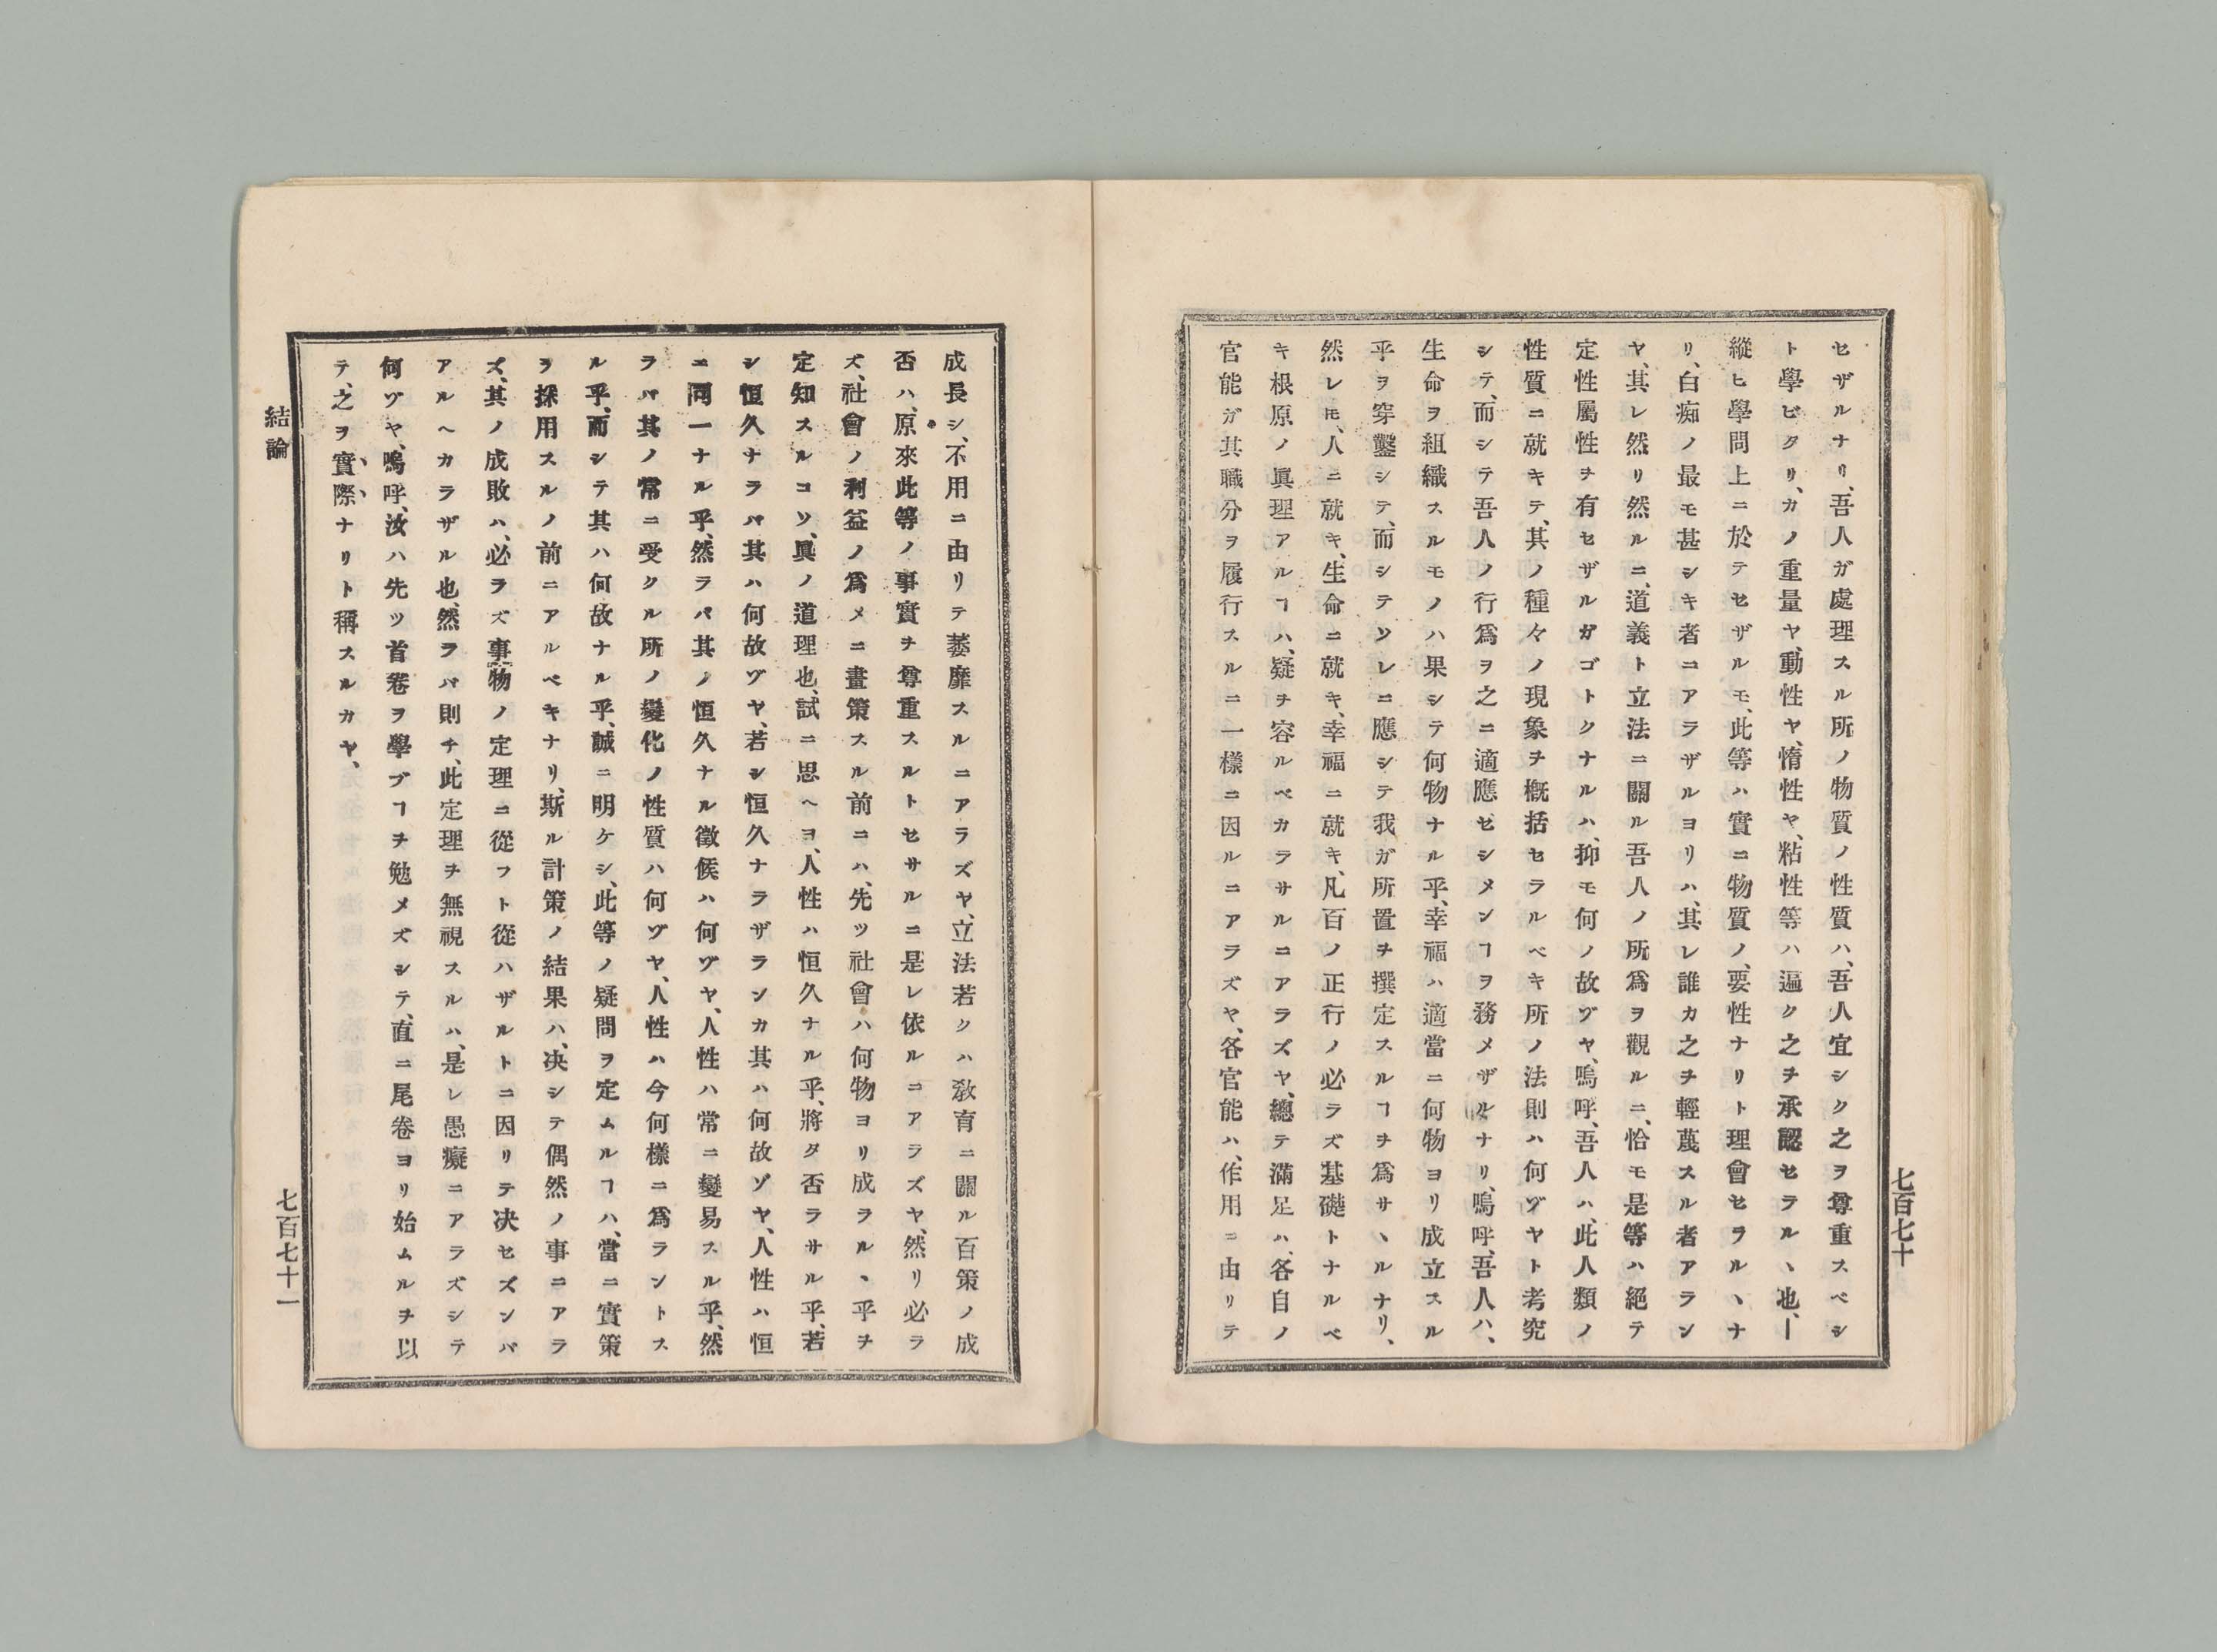 セザルナリ、吾人ガ處理スル所ノ物質ノ性質ハ、吾人宜シク之ヲ尊重スベシ
ト學ビタリ、カノ重量ヤ、動性ヤ、惰性ヤ、粘性等ハ遍ク之チ承認セラルヽ也、ー
縱ヒ學問上ニ於テセザルモ、此等ハ實ニ物質ノ、要性ナリト理會セラルヽナ
リ、白痴ノ最モ甚シキ者ニアラザルヨリハ、其レ誰カ之チ輕蔑スル者アラン
ヤ、其レ然リ然ルニ、道義ト立法ニ關ル吾人ノ所爲ヲ觀ルニ、恰モ是等ハ絕テ
定性屬性チ有セザルガゴトクナルハ、抑モ何ノ故ヅヤ、嗚呼、吾人ハ、此人類ノ
性質ニ就キテ、其ノ種々ノ現象チ槪括セラルベキ所ノ法則ハ何ヅヤト考究
シテ、而シテ吾人ノ行爲ヲ之ニ適應ゼシメンヿヲ務メザルナリ、嗚呼、吾人ハ、
生命ヲ組織スルモノハ果シテ何物ナル乎、幸福ハ適當ニ何物ヨリ成立スル
乎ヲ穿鑿シテ、而シテソレニ應シテ我ガ所置チ撰定スルヿヲ爲サヽルナリ、
然レ𪜈、人ニ就キ、生命ニ就キ、幸福ニ就キ、凡百ノ正行ノ必ラズ基礎トナルベ
キ根原ノ眞理アルヿハ、疑チ容ルベカラサルニアラズヤ、總テ滿足ハ、各自ノ
官能ガ其職分ヲ履行スルニ一樣ニ因ルニアラズヤ、各官能ハ、作用ニ由リテ
七百七十
成長シ、不用ニ由リテ萎靡スルニアラズヤ、立法若クハ敎育ニ關ル百策ノ成
否ハ、原來此等ノ事實チ尊重スルトセサルニ是レ依ルニアラズヤ、然リ必ラ
ズ、社會ノ利益ノ爲メニ畫策スル前ニハ、先ツ社會ハ何物ヨリ成ラルヽ乎チ
定知スルコソ、眞ノ道理也、試ニ思ヘヨ、人性ハ恒久ナル乎、將タ否ラサル乎、若
シ恒久ナラバ其ハ何故ヅヤ、若シ恒久ナラザランカ其ハ何故ゾヤ、人性ハ恒
ニ同一ナル乎、然ラバ其ノ恒久ナル徵候ハ何ヅヤ、人性ハ常ニ變易スル乎、然
ラバ其ノ常ニ受クル所ノ變化ノ性質ハ何ヅヤ、人性ハ今何樣ニ爲ラントス
ル乎、而シテ其ハ何故ナル乎、誠ニ明ケシ、此等ノ疑問ヲ定ムルヿハ、當ニ實策
ヲ採用スルノ前ニアルベキナリ、斯ル計策ノ結果ハ、决シテ偶然ノ事ニアラ
ズ、其ノ成敗ハ、必ラズ事物ノ定理ニ從フト從ハザルトニ因リテ决セズンバ
アルヘカラザル也、然ラバ則チ、此定理チ無視スルハ、是レ愚癡ニアラズシテ
何ヅヤ、嗚呼、汝ハ先ツ首卷ヲ學ブヿチ勉メズシテ、直ニ尾卷ヨリ始ムルヲ以
テ、之ヲ實際ナリト稱スルカヤ、
結論
七百七十一